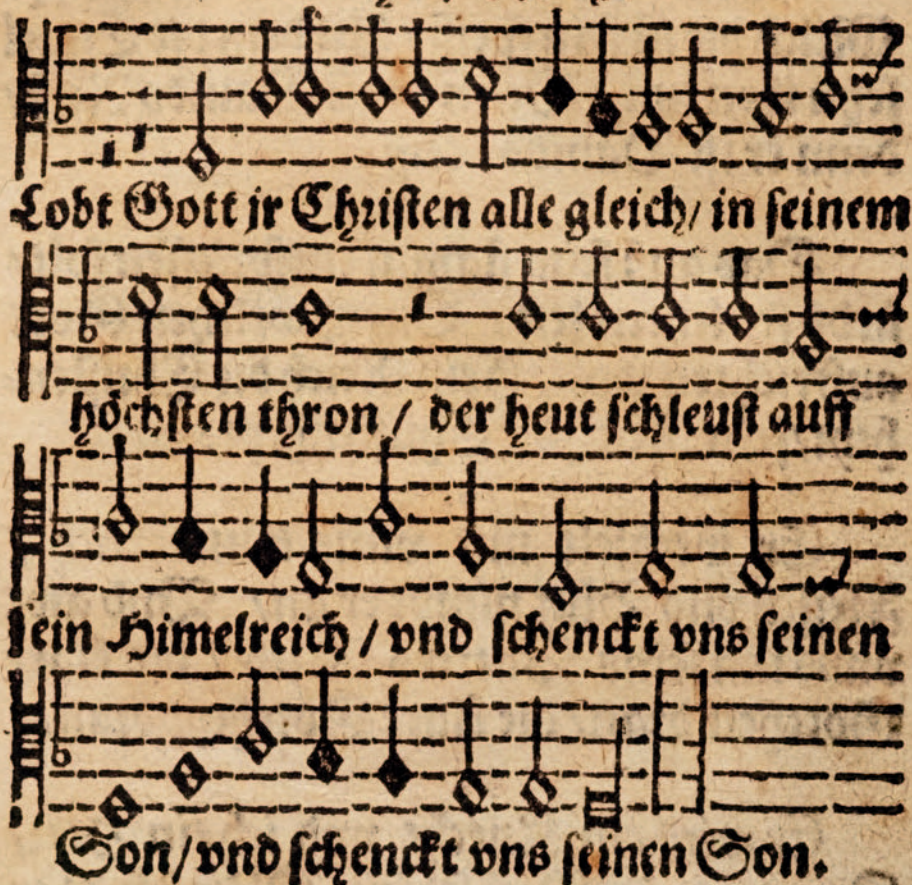 Lobt Gott jr Christen alle gleich/ in seinem
höchsten thron / der heut schleust auff
sein Himelreich / vnd schenckt vns seinen
Son/vnd schenckt vns seinen Son.